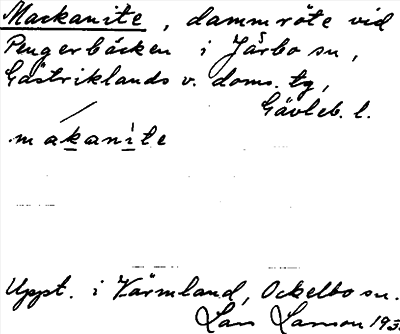 Mackanite, dammröte vid
Pengerbäcken i Järbo sn,
Gästriklands v. doms. tg,
Gävleb. l.
makanite
Uppt. i Värmland, Ockelbo sn.
Lars Larsson 193